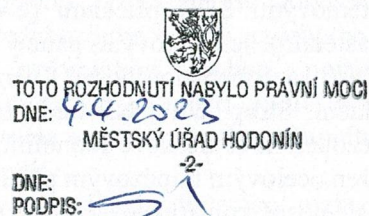 TOTO ROZHODNUTÍ NABYLO PRÁVNÍ MOCI
DNE: 4.4.2023
MĚSTSKÝ ÚŘAD HODONÍN
-2-
DNE:
PODPIS: